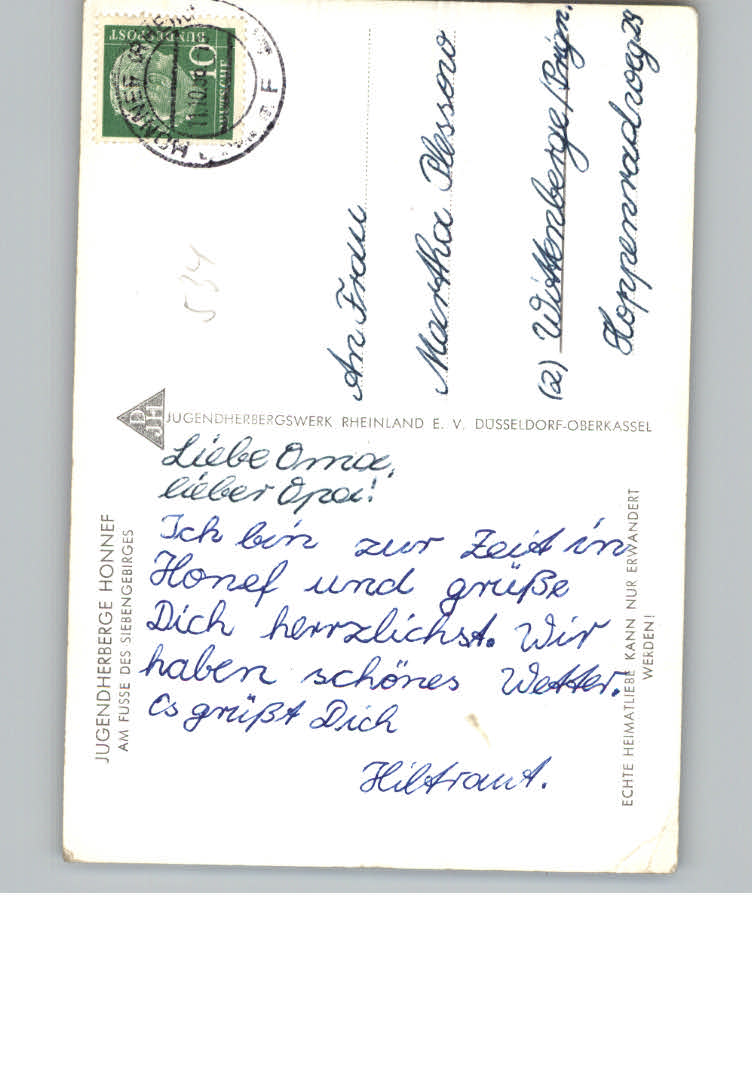 BUNDESPOST
10
HONNEF
11.10.
534
An Frau
Martha Plessow
(2) Wittenberge/Prign.
Hoppenradweg 29
DJH
JUGENDHERBERGSWERK RHEINLAND E. V. DÜSSELDORF-OBERKASSEL
Liebe Oma,
lieber Opa!
Ich bin zur Zeit in
Honef und grüße
Dich herrzlichst. Wir
haben schönes Wetter.
Es grüßt Dich
Hiltraut.
JUGENDHERBERGE HONNEF
AM FUSSE DES SIEBENGEBIRGES
ECHTE HEIMATLIEBE KANN NUR ERWANDERT
WERDEN!